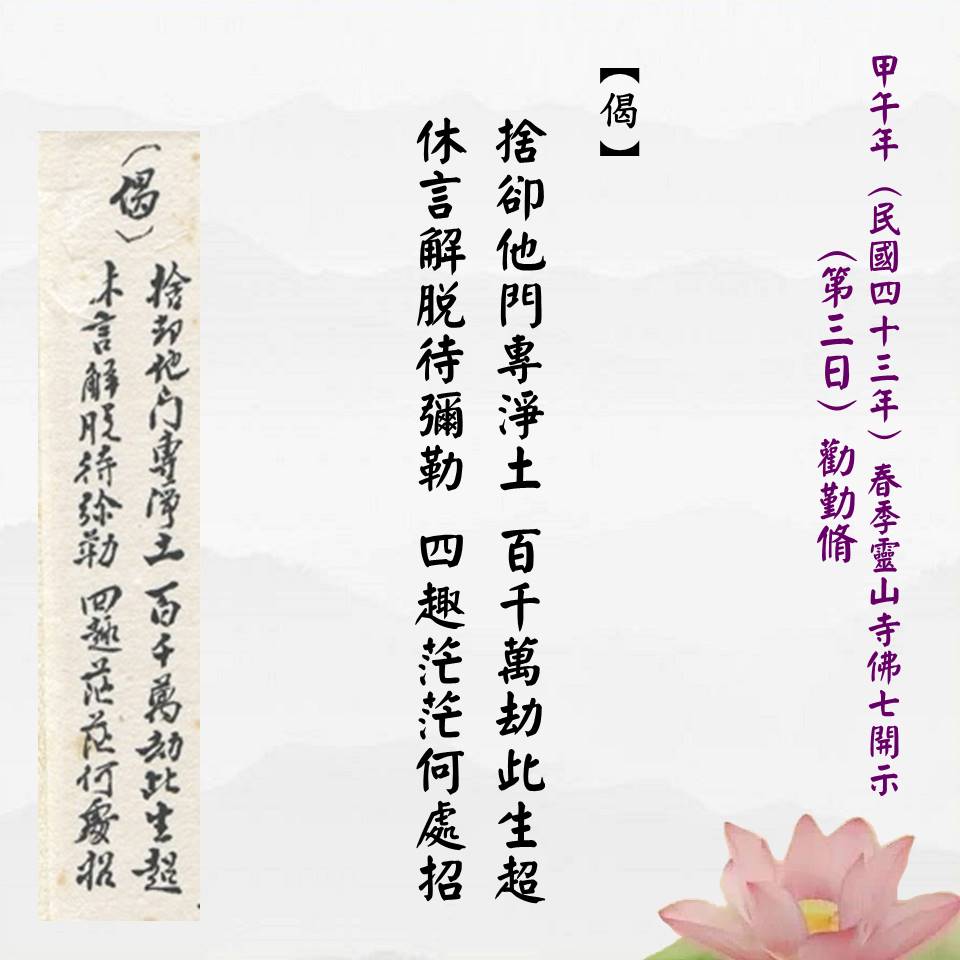 甲午年（民國四十三年）春季靈山寺佛七開示
（第三日）勸勤脩
【偈】
捨卻他門專淨土 百千萬劫此生超
休言解脫待彌勒 四趣茫茫何處招
（偈）
捨却他门專淨土 百千萬劫此生超
休言解脫待弥勒 四趣茫茫何處招